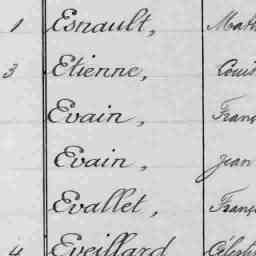 1 Esnault,
3 Etienne, Louis
Evain, Franç
Evain, Jean
Evallet, Franç
4 Eveillard Célest